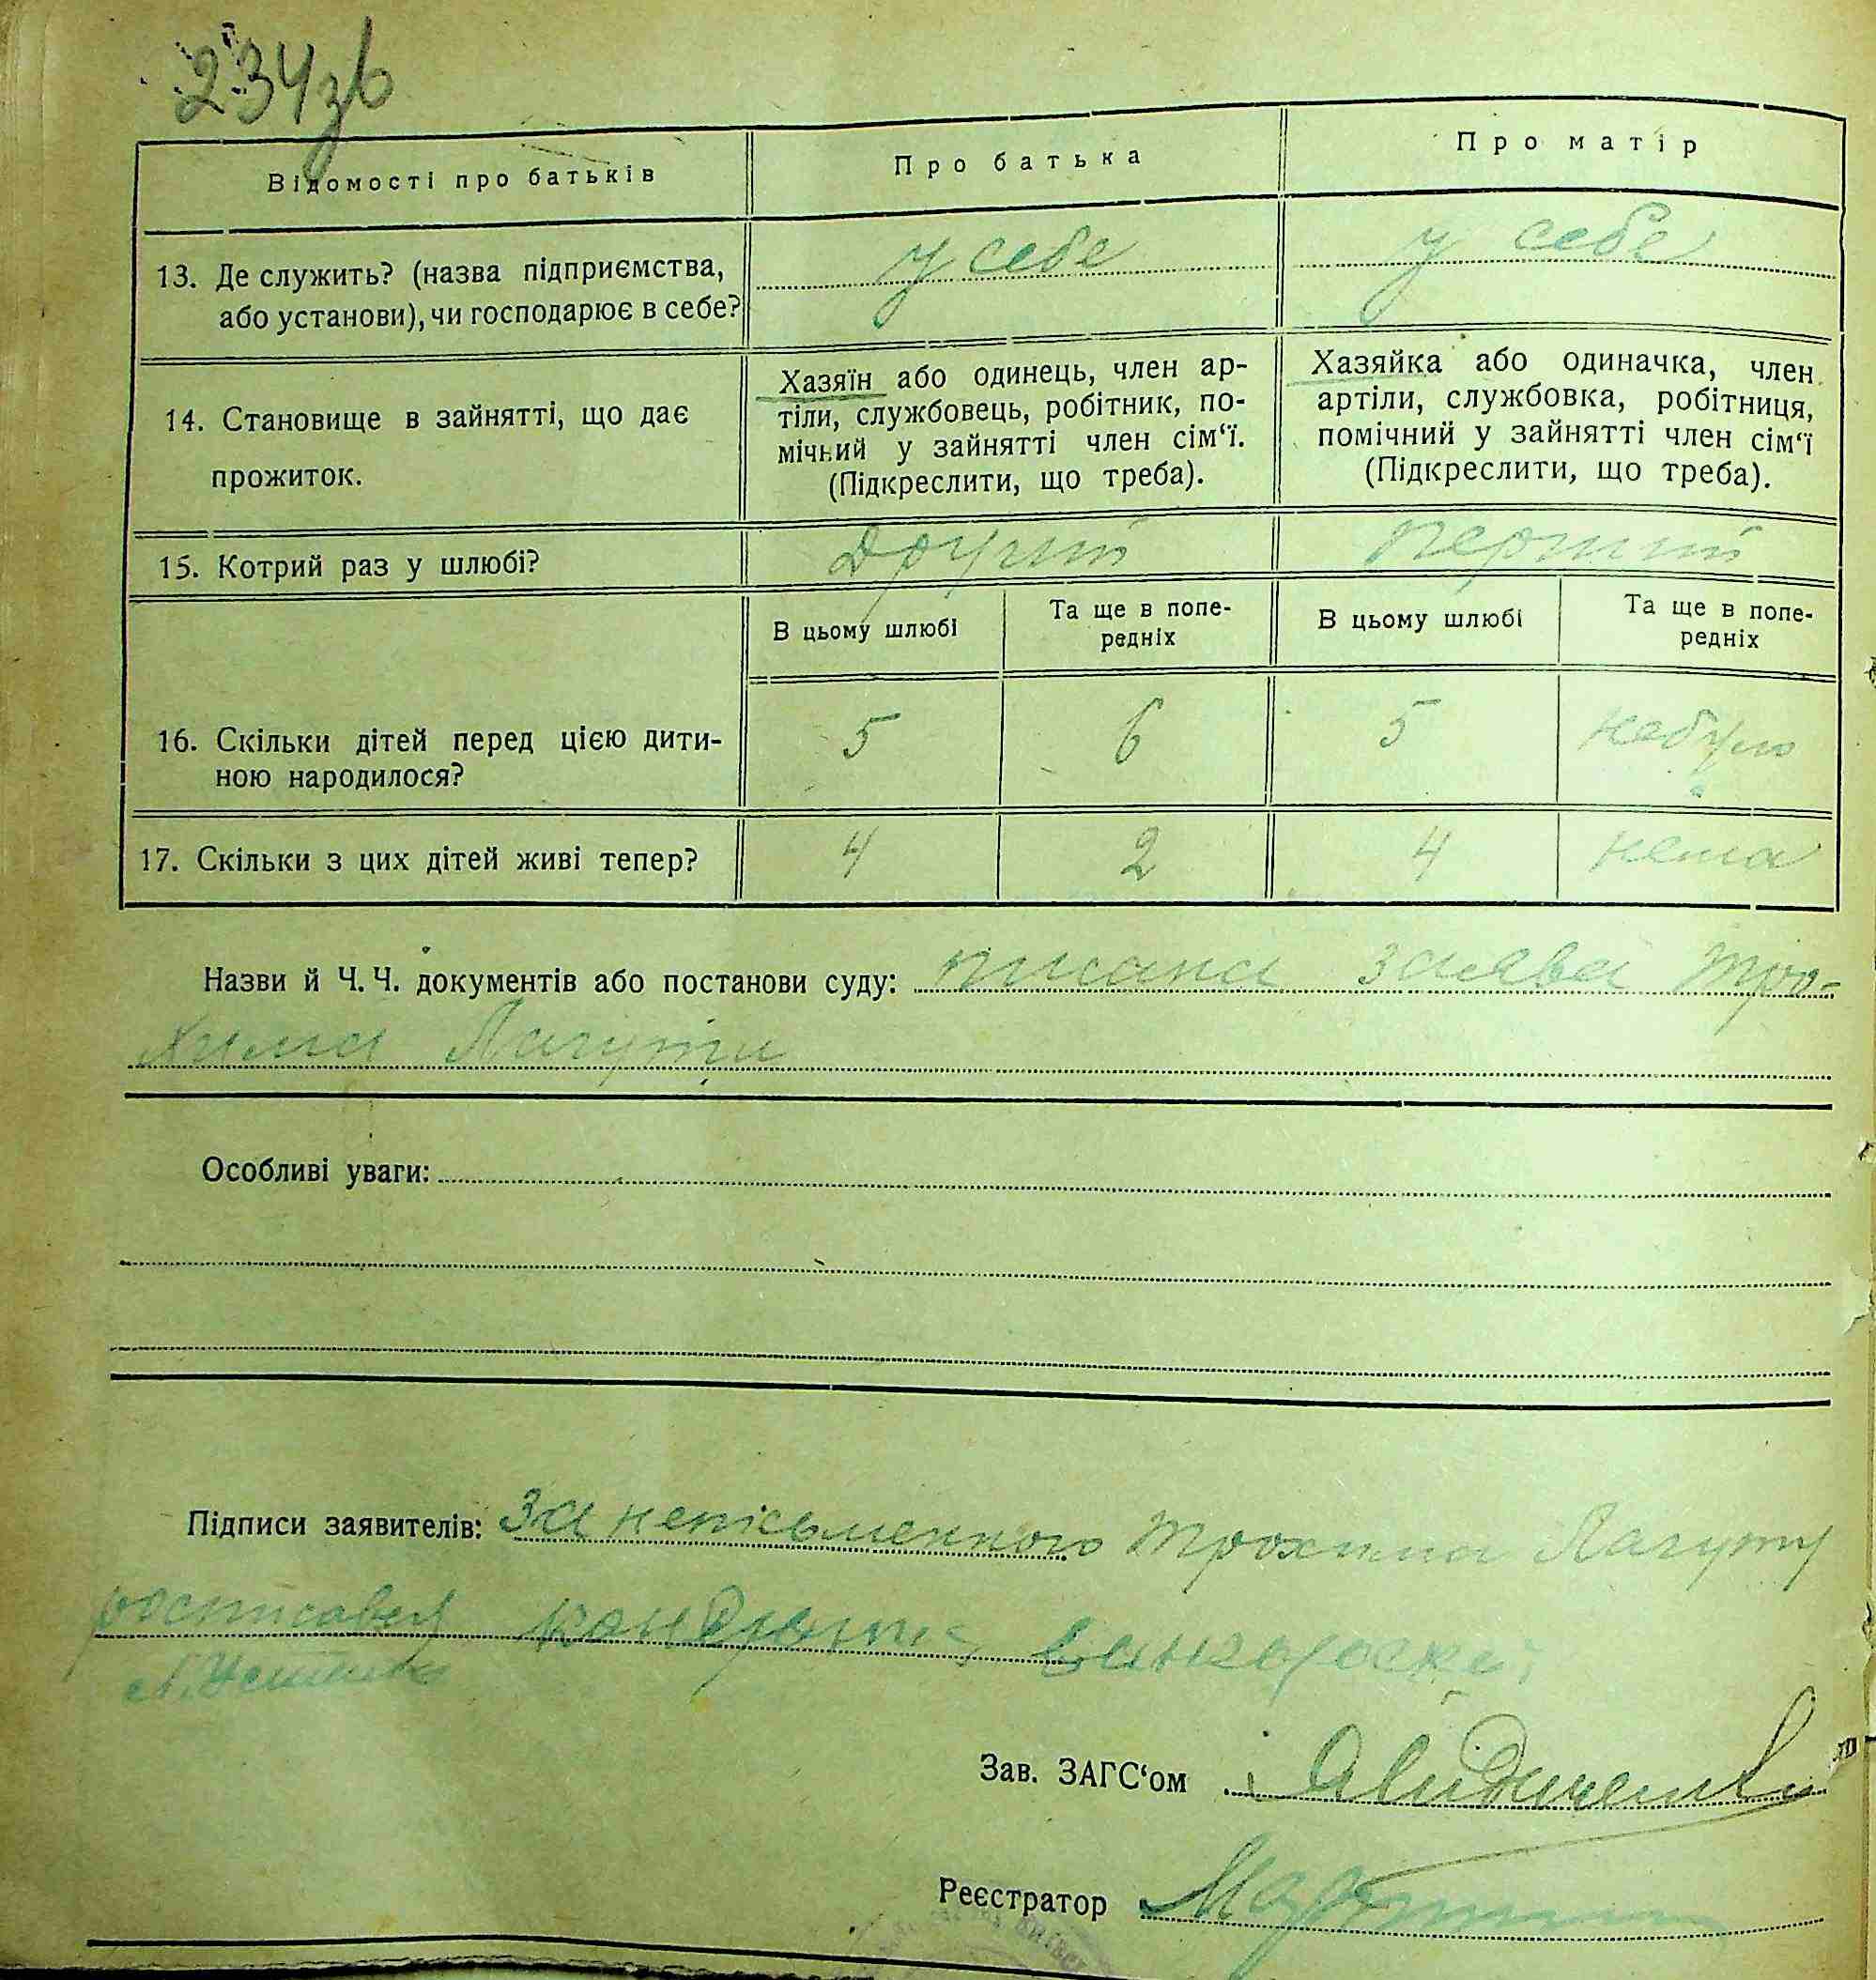 234зв
Відомості про батьків
Про батька
Про матір
13. Де служить? (назва підприємства,
або установи), чи господарює в себе?
у себе
у себе
14. Становище в зайнятті, що дає
прожиток.
Хазяїн або одинець, член ар-
тіли, службовець, робітник, по-
мічний у зайнятті член сім‘ї.
(Підкреслити, що треба).
Хазяйка або одиначка, член
артіли, службовка, робітниця,
помічний у зайнятті член сім‘ї
(Підкреслити, що треба).
15. Котрий раз у шлюбі?
другий
перший
16. Скільки дітей перед цією дити-
ною народилося?
В цьому шлюбі
Та ще в попе-
редніх
В цьому шлюбі
Та ще в попе-
редніх
5
6
5
небуло
17. Скільки з цих дітей живі тепер?
4
2
4
нема
Назви й Ч. Ч. документів або постанови суду: писана заява Тро-
хима Лагути
Особливі уваги:
Підписи заявителів: За неписьменного Трохима Лагуту
росписавсь
Зав. ЗАГС‘ом
Реєстратор